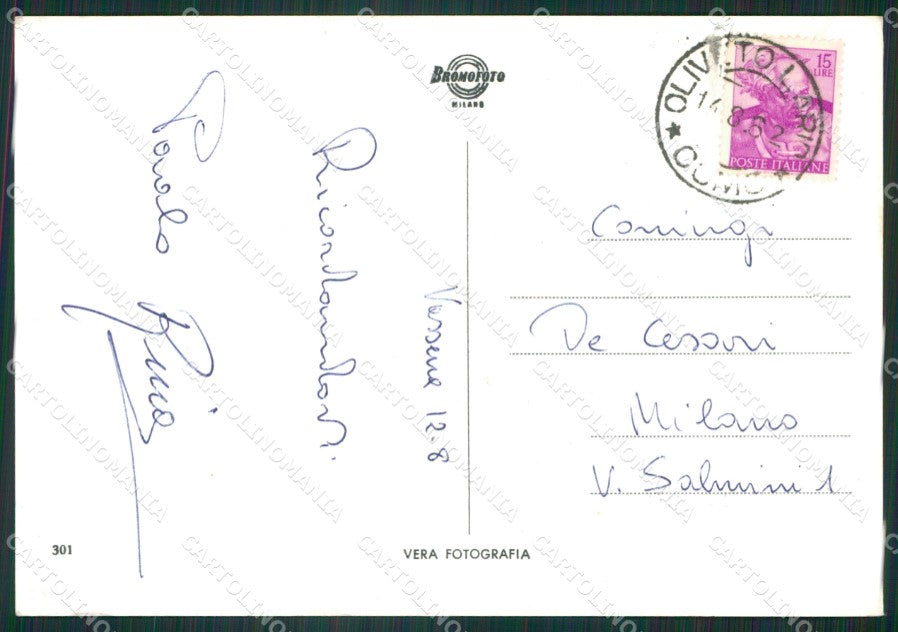 BROMOFOTO
MILANO
15
LIRE
POSTE ITALIANE
OLIVETO LARIO
14.8.62
COMO
Vassena 12.8
Ricordandovi.
Paolo
Coniugi
De Cesari
Milano
V. Salmini 1
301
VERA FOTOGRAFIA
CARTOLINOMANIA